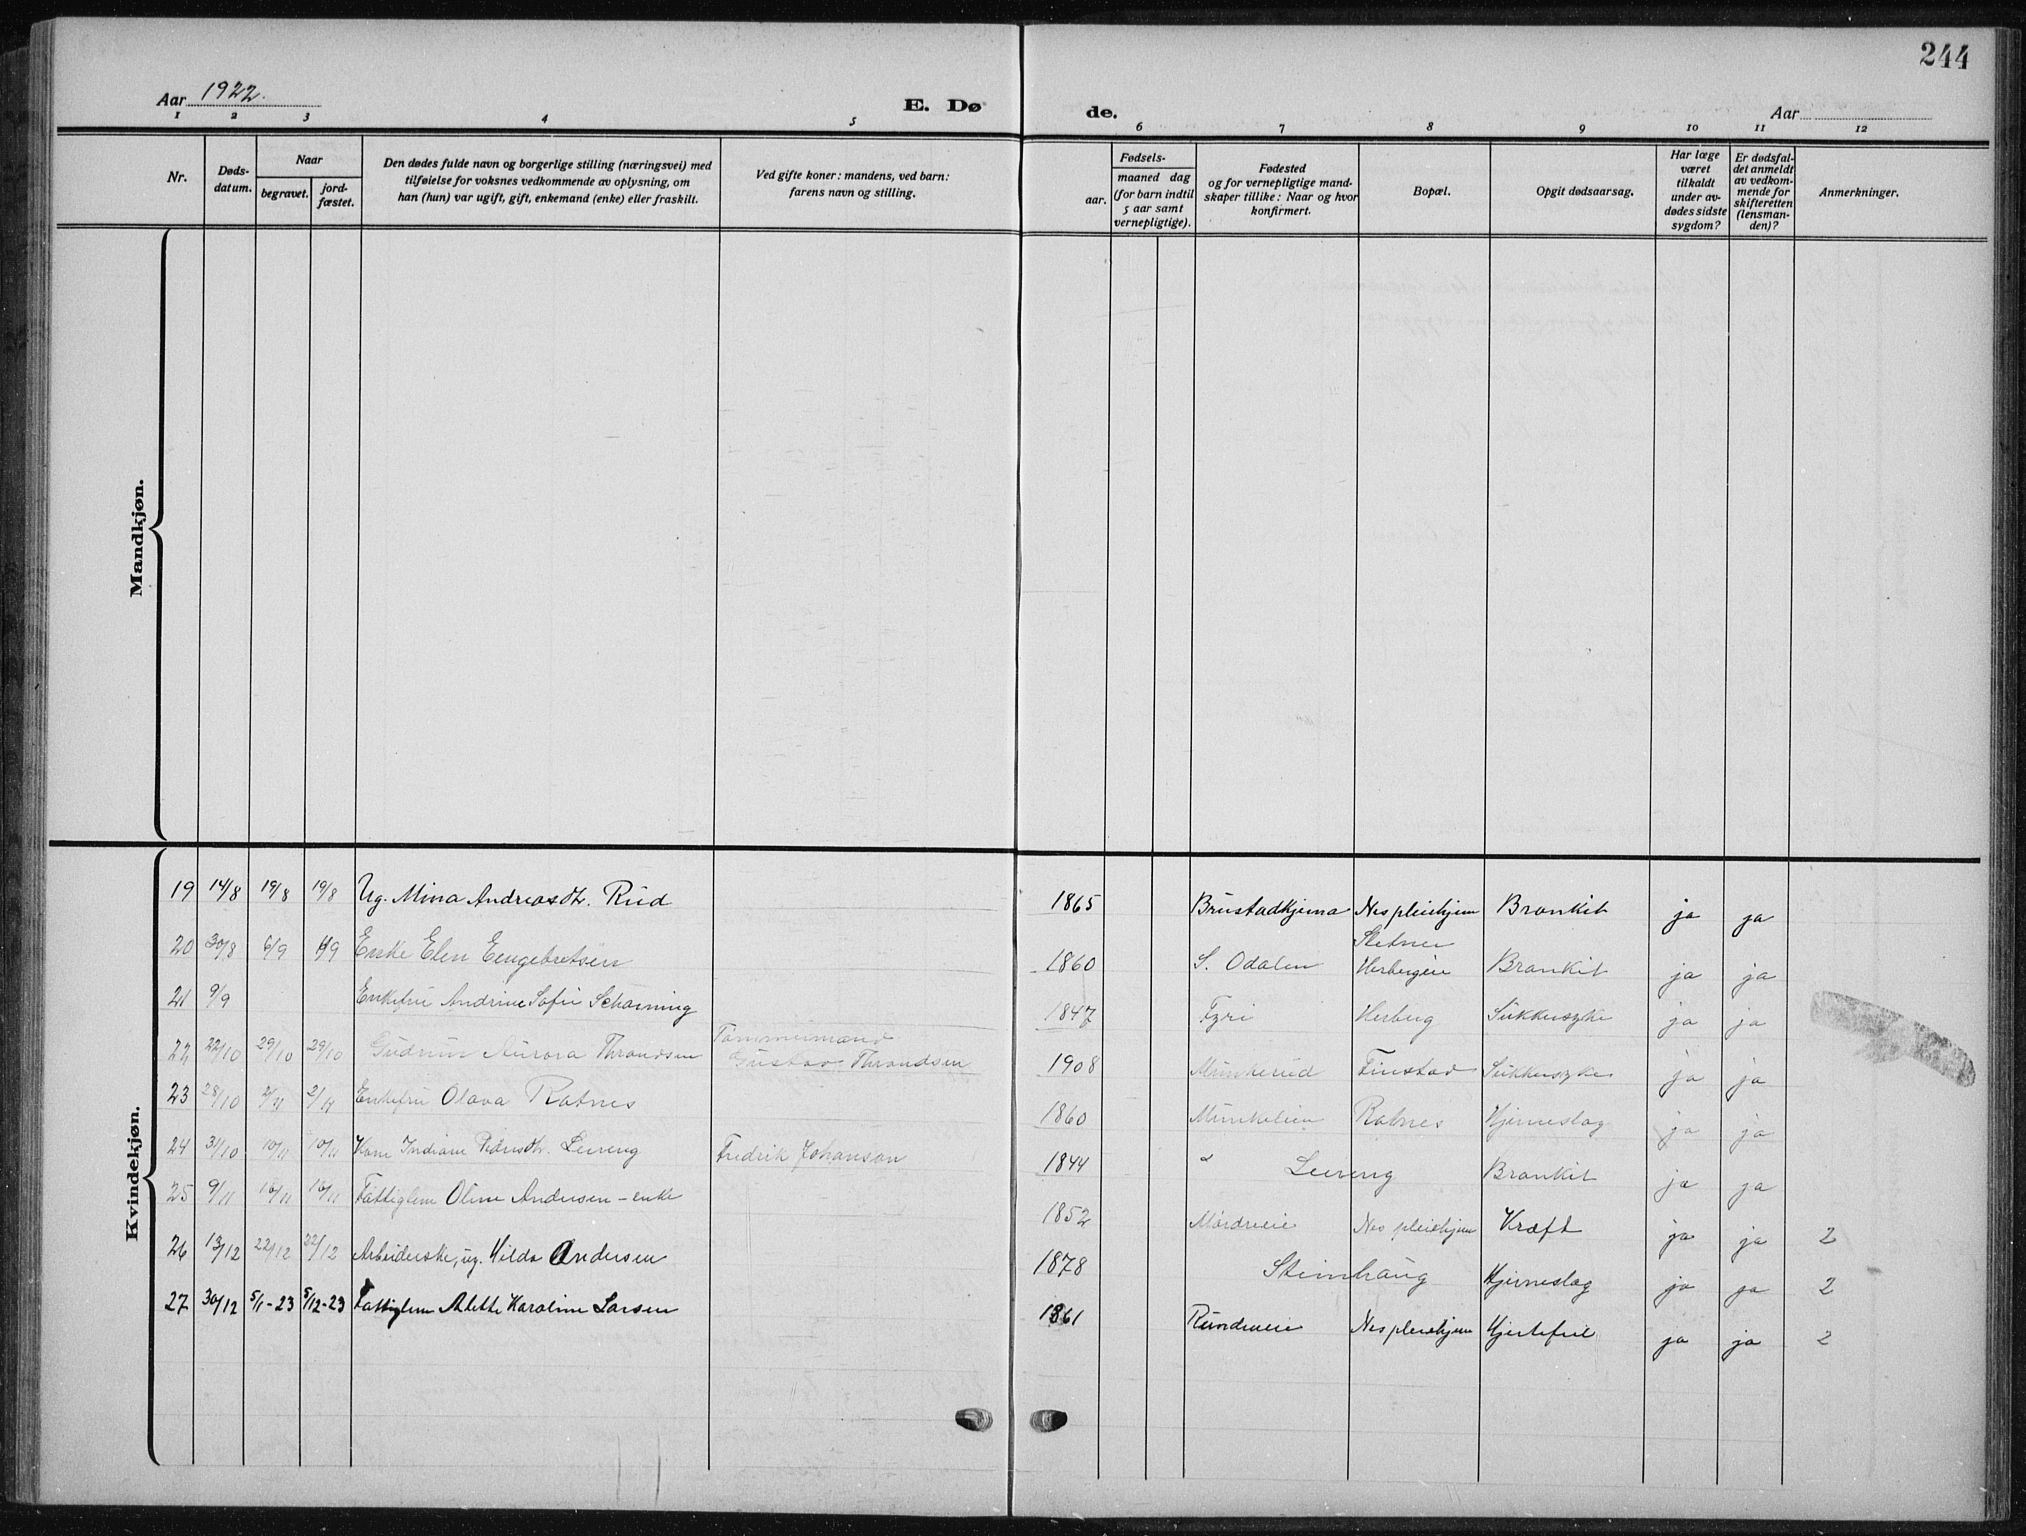 244
Aar 1922.
E. Dø
de.
Aar
1 2 3 4 5 6 7 8 9 10 11 12
Nr.
Døds-
datum.
Naar
begravet.
jord-
fæstet.
Den dødes fulde navn og borgerlige stilling (næringsvei) med
tilføielse for voksnes vedkommende av oplysning, om
han (hun) var ugift, gift, enkemand (enke) eller fraskilt.
Ved gifte koner: mandens, ved barn:
farens navn og stilling.
Fødsels-
aar.
maaned dag
(for barn indtil
5 aar samt
vernepligtige).
Fødested
og for vernepligtige mand-
skaper tillike: Naar og hvor
konfirmert.
Bopæl.
Opgit dødsaarsag.
Har læge
været
tilkaldt
under av-
dødes sidste
sygdom?
Er dødsfal-
det anmeldt
av vedkom-
mende for
skifteretten
(lensman-
den)?
Anmerkninger.
Mandkjøn.
Kvindekjøn.
19 14/8 19/8 19/8 Ug. Mina Andreasdtr. Rud 1865 Brustadkjerna Nes pleiehjem Bronkit ja ja
20 30/8 6/9 Enke Elen Eengebretsen 1860 S. Odalen Herbergie Bronkit ja ja
21 9/9 Enkefru Andrine Sofie Scharning 1847 Herberg Sukkersyke ja ja
22 22/10 29/10 29/10 Gudrun Aurora Throndsen Tømmermand
Gustav Throndsen 1908 Munkerud Finstad Sukkersyke ja ja
23 28/10 2/11 2/11 Enkefru Olava Rotnes 1860 Rotnes Hjerneslag ja ja
24 31/10 10/11 10/11 Kone Indiane Pedersdtr. Leireng Fredrik Johanson 1844 " Leireng Bronkit ja ja
25 9/11 16/11 16/11 Fattiglem Oline Andersen - enke 1852 Mordreeie Nes pleiehjem Kræft ja ja 2
26 13/12 22/12 22/12 Arbeiderske, ug. Hilda Andersen 1878 Steinhaug Hjerneslag ja ja 2
27 30/12 5/1-23 5/12-23 Fattiglem Alette Karoline Larsen 1861 Rundreeie Nes pleiehjem Hjertefeil ja ja 2